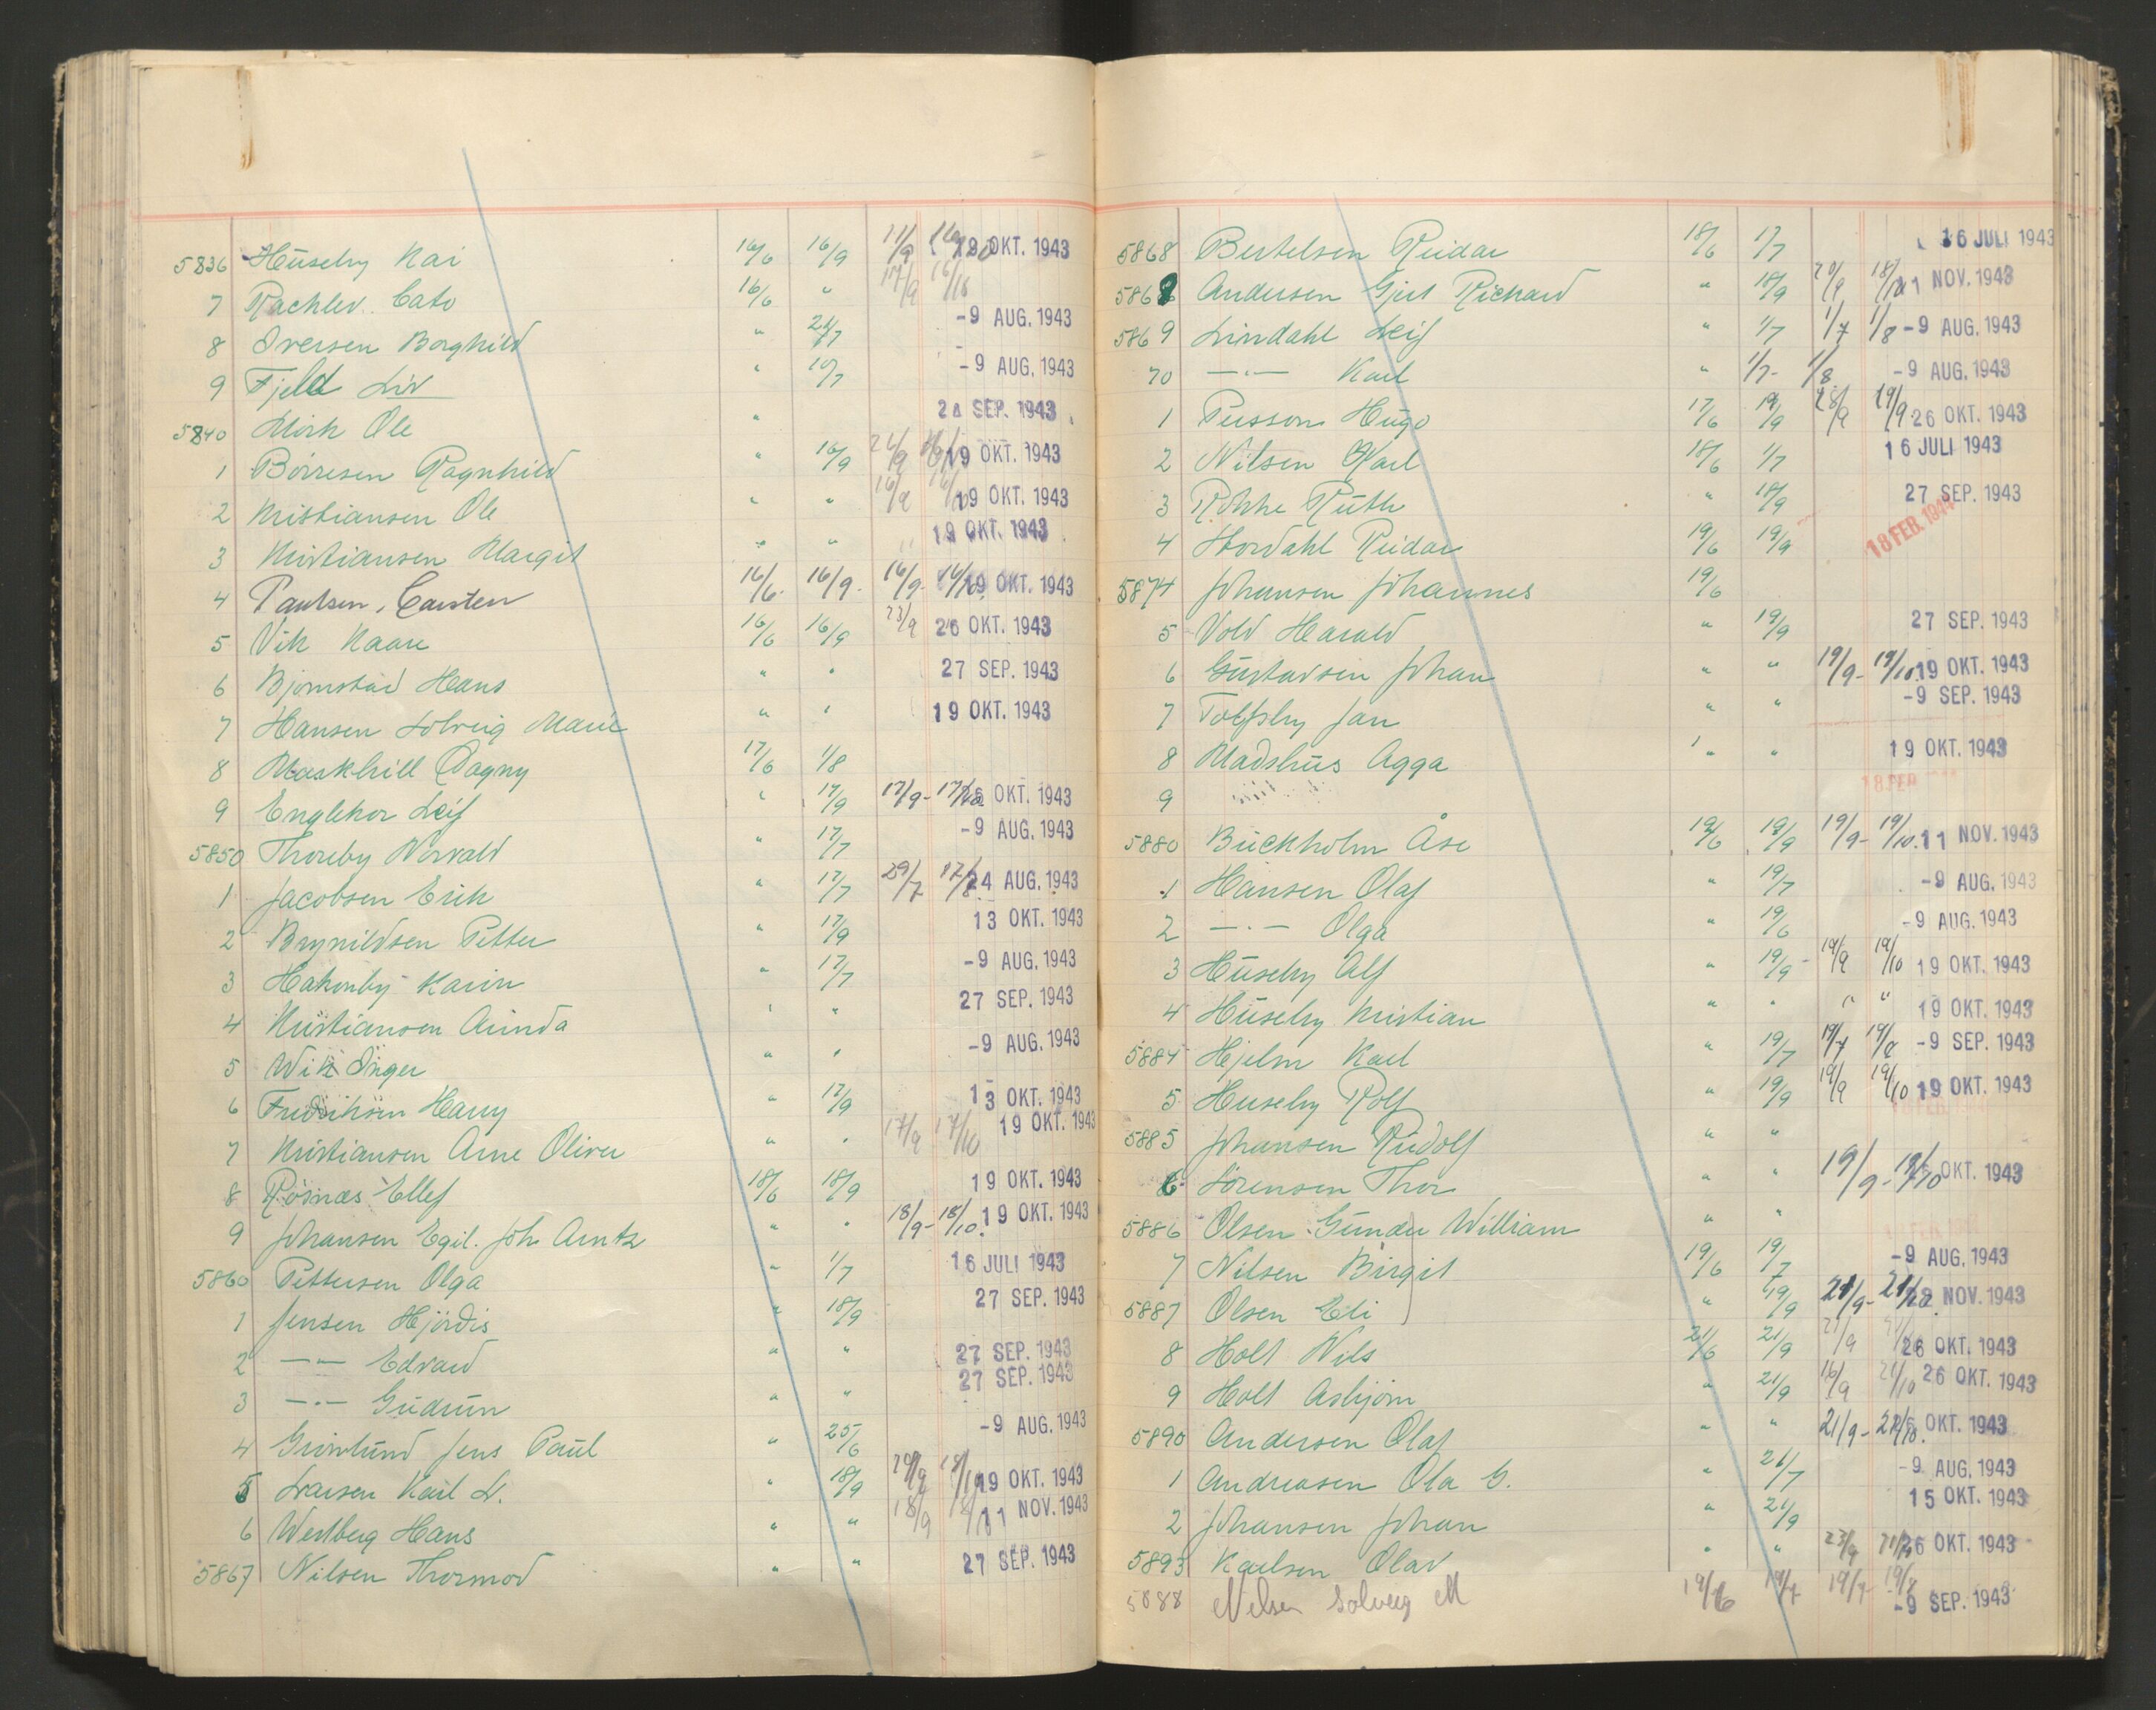 5836 Huseby Kai 16/6 16/9 11/9 19 OKT. 1943
7 Rachlev Cato 16/6 " 17/9 16/10
8 Iversen Borghild " 24/7 -9 AUG. 1943
9 Fjeld Liv " 10/7 -9 AUG. 1943
5840 Mörk Ole " SEP. 1943
1 Börresen Ragnhild " 16/9 19 OKT. 1943
2 Kristiansen Ole " " 16/9 16/10 19 OKT. 1943
3 Kristiansen Margit " " " 19 OKT. 1943
4 Paulsen, Carsten 16/6. 16/9. 16/9- 16/10 19 OKT. 1943
5 Vik Kaare 16/6 16/9 23/9 26 OKT. 1943
6 Bjørnstad Hans " " 27 SEP. 1943
7 Hansen Solveig Marie " " 19 OKT. 1943
8 Dagny 17/6 1/8
9 Leif " 17/9 17/9- 17/10. 26 OKT. 1943
5850 Thoreby Norvald " 17/7 -9 AUG. 1943
1 Jacobsen Erik " 17/7 29/7 17/8 24 AUG. 1943
2 Brynildsen Petter " 17/9 13 OKT. 1943
3 Hakonby Karin " 17/7 -9 AUG. 1943
4 Kristiansen Arinda " " 27 SEP. 1943
5 Wik Inger " " -9 AUG. 1943
6 Fredriksen Harry " 17/9 13 OKT. 1943
7 Kristiansen Arne Oliver " " 17/9 17/10 19 OKT. 1943
8 Rösnæs Ellef 18/6 18/9 19 OKT. 1943
9 Johansen Egil. Joh Arntz " " 18/9- 18/10. 19 OKT. 1943
5860 Pettersen Olga " 1/7 16 JULI 1943
1 Jensen Hjördis " 18/9 27 SEP. 1943
2 — " — Edvard " " 27 SEP. 1943
3 — " — Gudrun " " 27 SEP. 1943
4 Grönlund Jens Paul " 25/6 -9 AUG. 1943
5 Larsen Karl L. " 18/9 18/10 19 OKT. 1943
6 Westberg Hans " " 18/9 18/10 11 NOV. 1943
5867 Nilsen Thormod " " 27 SEP. 1943
5868 Bertelsen Reidar 18/6 1/7 16 JULI 1943
5868 Andersen Gjert Richard " 18/9 20/9 18/10 11 NOV. 1943
5869 Lindahl Leif " 1/7 1/7 1/8 -9 AUG. 1943
70 — " — Karl " 1/7- 1/8 -9 AUG. 1943
1 Persson Hugo 17/6 19/9 28/9 19/9 26 OKT. 1943
2 Nilsen Karl 18/6 1/7 16 JULI 1943
3 Ruth " 18/9 27 SEP. 1943
4 Hordahl Reidar 19/6 19/9 18 FEB. 1944
5874 Johansen Johannes 19/6
5 Vold Harald " 19/9 27 SEP. 1943
6 Gustavsen Johan " " 19/9- 19/10. 19 OKT. 1943
7 Tolfsby Jan " " -9 SEP. 1943
8 Madshus Agga " " 19 OKT. 1943
9 18 FEB
5880 Buckholm Åse 19/6 19/9 19/9- 19/10. 11 NOV. 1943
1 Hansen Olaf " 19/7 -9 AUG. 1943
2 — " — Olga " 19/6 -9 AUG. 1943
3 Huseby Alf " 19/9- 19/9 19/10 19 OKT. 1943
4 Huseby Kristian " " " " 19 OKT. 1943
5884 Hjelm Karl " 19/7 19/7 19/8 -9 SEP. 1943
5 Huseby Rolf " 19/9 19/9 19/10 19 OKT. 1943
5885 Johansen Rudolf " "
6 Sörensen Thor " " 19/9- 19/10 OKT. 1943
5886 Olsen Gunder William " "
7 Nilsen Birgit 19/6 19/7 -9 AUG. 1943
5887 Olsen Edi " 19/9 21/9- 21/10. NOV. 1943
8 Holt Nils 21/6 21/9 21/9 26 OKT. 1943
9 Holt Asbjørn " 21/9 16/9 21/10 26 OKT. 1943
5890 Andersen Olaf " " 21/9- 21/10. 26 OKT. 1943
1 Andreasen Ola G. " 21/7 -9 AUG. 1943
2 Johansen Johan " 21/9 15 OKT. 1943
5893 Karlsen Olav " " 23/9 21/10 26 OKT. 1943
5888 Nilsen Solveig M 19/6 19/7 19/7 19/8 -9 SEP. 1943